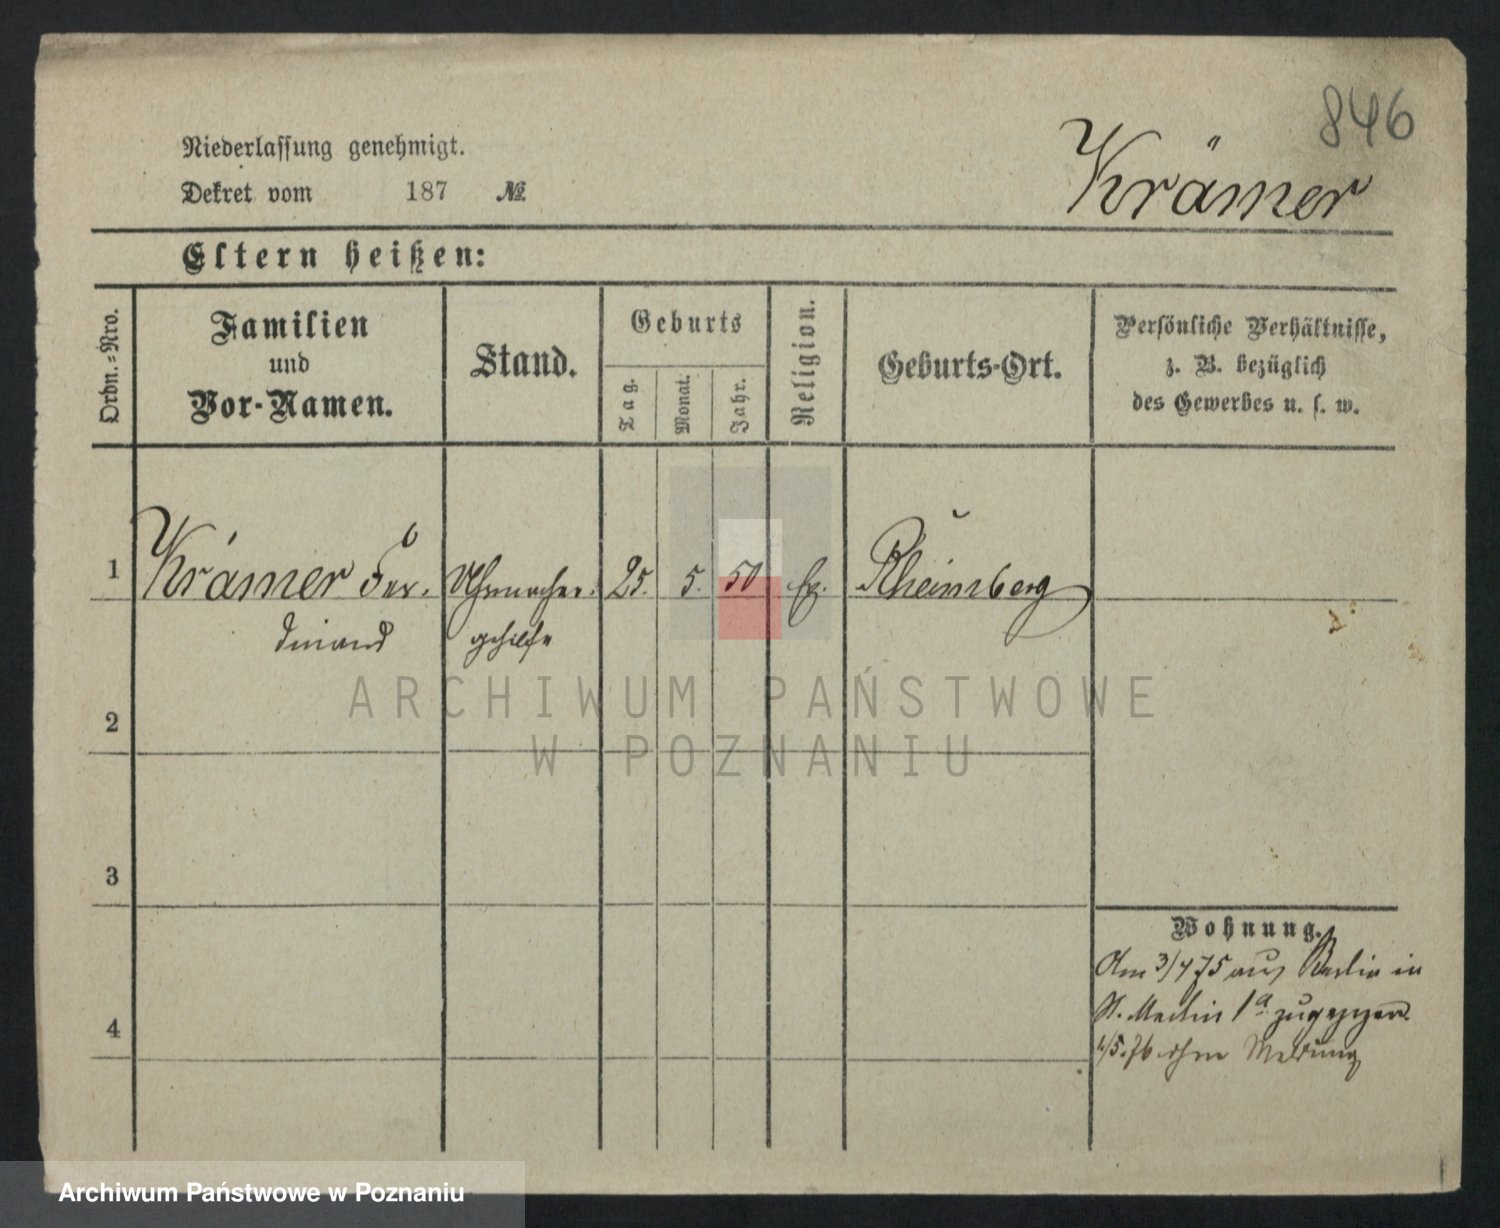 846
Krämer
Niederlassung genehmigt.
Dekret vom 187 №
Eltern heißen:
Ordn.-Nro.
Familien
und
Vor-Namen.
Stand.
Geburts
Tag.
Monat.
Jahr.
Religion.
Geburts-Ort.
Persönliche Verhältnisse,
z. B. bezüglich
des Gewerbes u. s. w.
1 Krämer Fer- Uhrmacher- 25. 5. 50 Rheinsberg
dinand gehilfe
2
3
4
Wohnung.
Am 3/4 75 aus Berlin in
St. Martin 1a zugezogen.
/5.76 ohne Meldung
ARCHIWUM PAŃSTWOWE
W POZNANIU
Archiwum Państwowe w Poznaniu